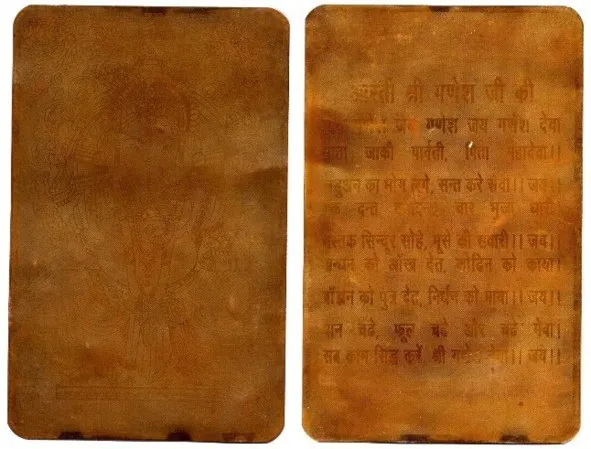 आरती श्री गणेश जी की
जय गणेश जय गणेश जय गणेश देवा
माता जाकी पार्वती, पिता महादेवा।।
लडुअन का भोग लगे, सन्त करे सेवा।। जय।।
एक दन्त चार भुजा धारी
मस्तक सिन्दूर सोहे, मूसे की सवारी।। जय।
अन्धन को आँख देत, कोढ़िन को काया।
बाँझन को पुत्र देत, निर्धन को माया।। जय।
पान चढ़े, फूल चढ़े और चढ़े मेवा।
सब काम सिद्ध करें, श्री गणेश देवा।। जय।।